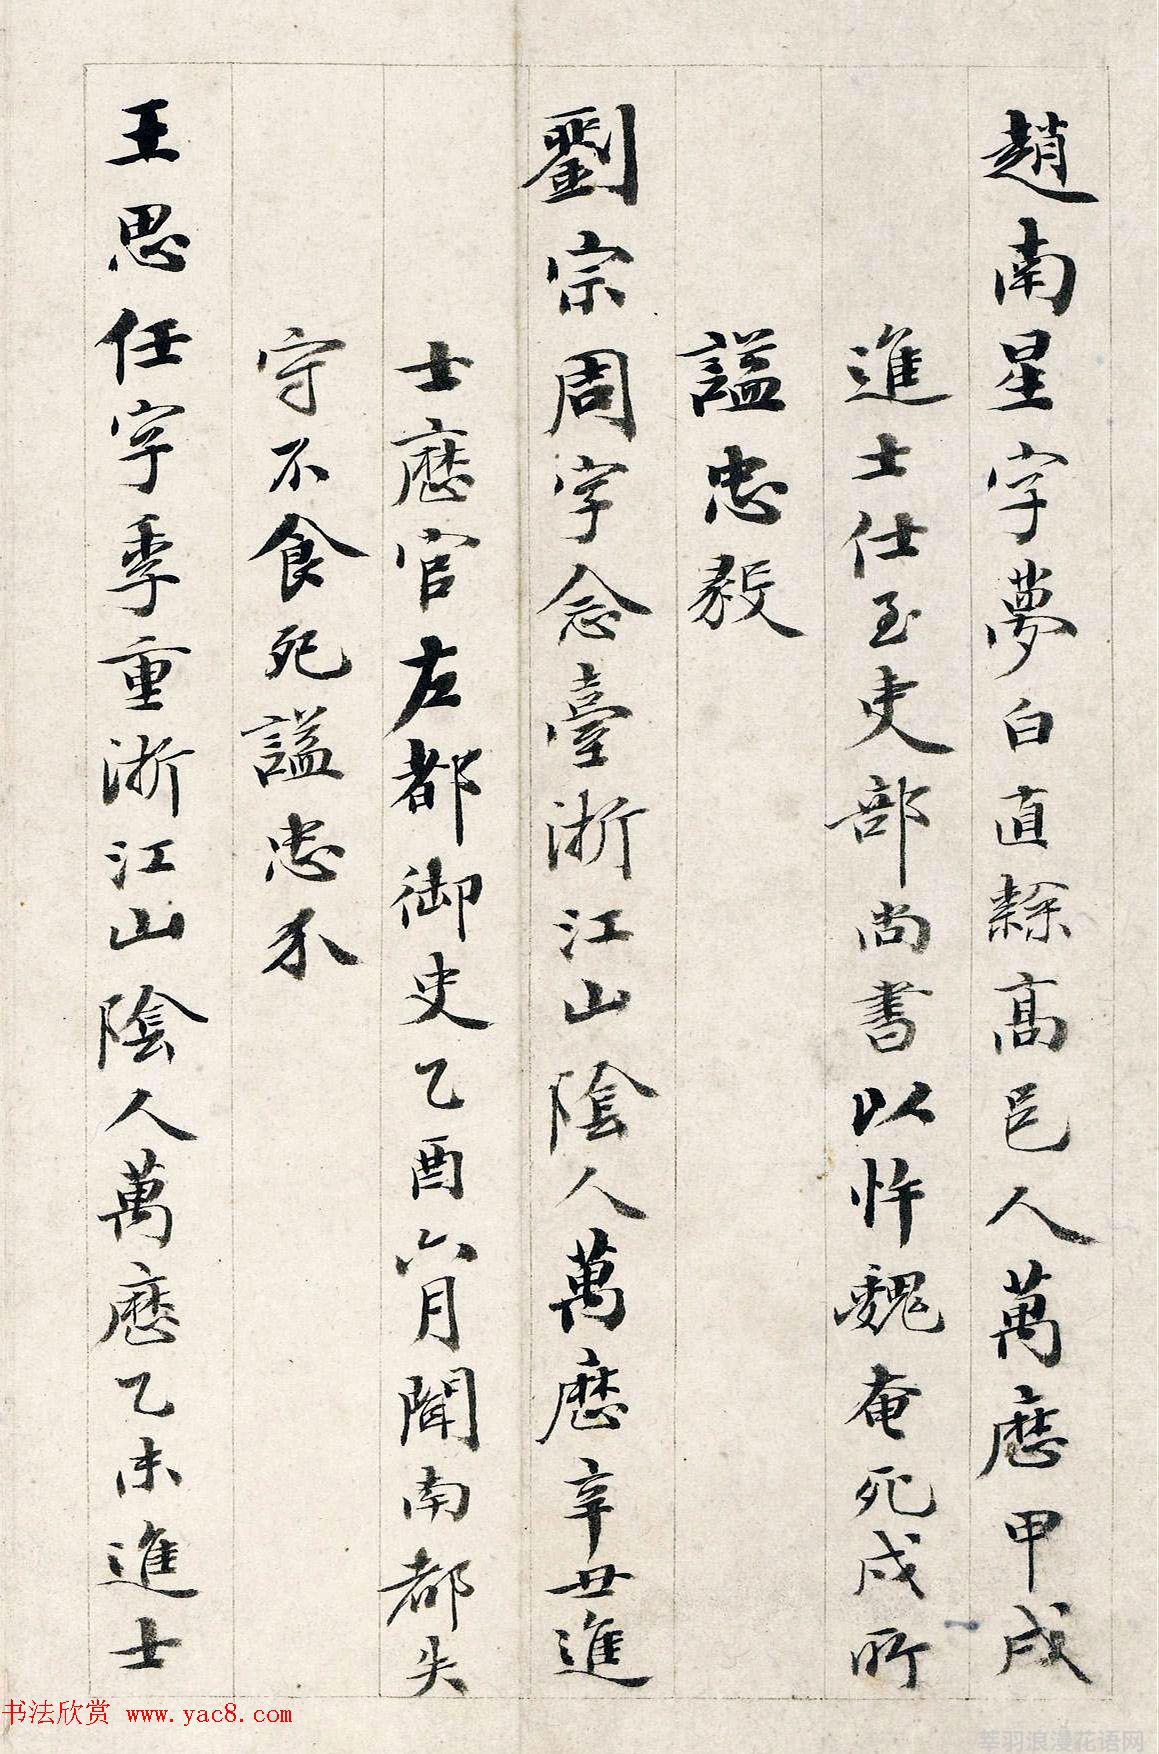 趙南星字夢白直隸高邑人萬曆甲戌
進士仕至吏部尚書以忤魏奄死戍所
謚忠毅
劉宗周字念臺浙江山陰人萬曆辛丑進
士歷官左都御史乙酉六月聞南都失
守不食死謚忠介
王思任字季重浙江山陰人萬曆乙未進士
书法欣赏 www.yac8.com
莘羽浪漫花语网